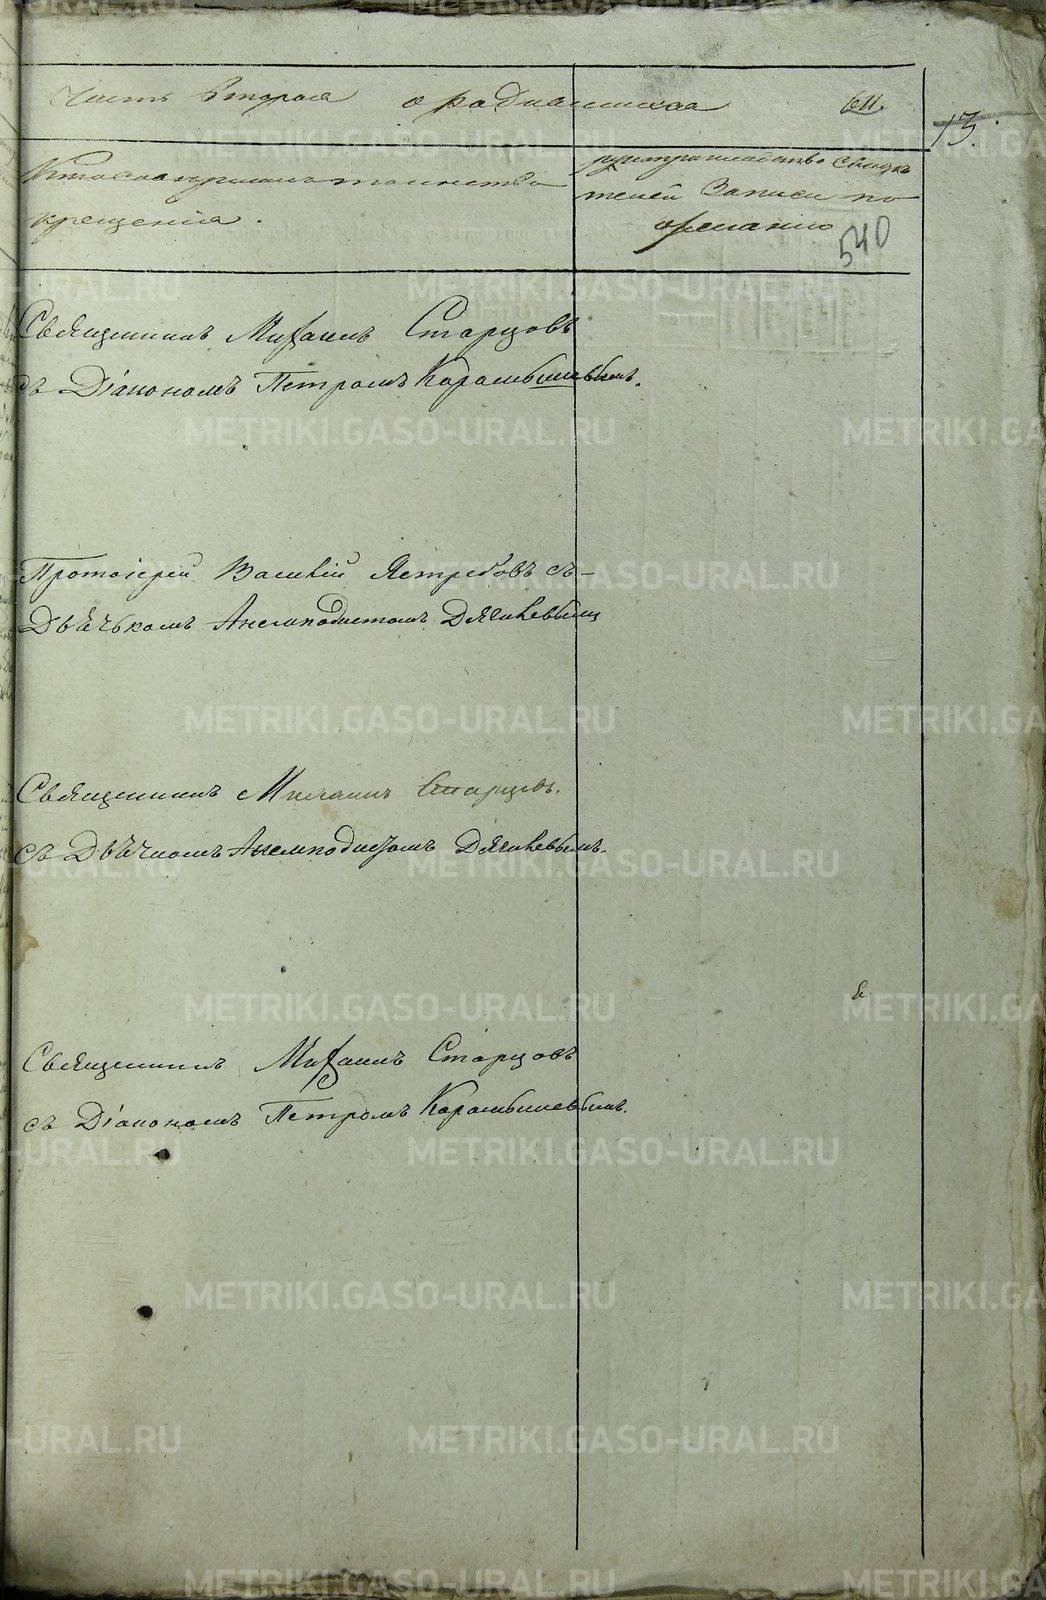 Часть вторая о родившихся 611.
13.
Кто совершалъ таинство
крещенія.
рукоприкладство свидѣ
телей записи по
желанію
540
Священникъ Михаилъ Старцовъ
съ Діакономъ Петромъ Карамышевымъ.
Протоіерей Василій Ястребовъ съ
Дьячькомъ Анемподистомъ Дягилевымъ
Священникъ Михаилъ Старцовъ.
съ Дьячкомъ Анемподистомъ Дягилевымъ.
Священникъ Михаилъ Старцовъ
съ Діакономъ Петромъ Карамышевымъ.
METRIKI.GASO-URAL.RU